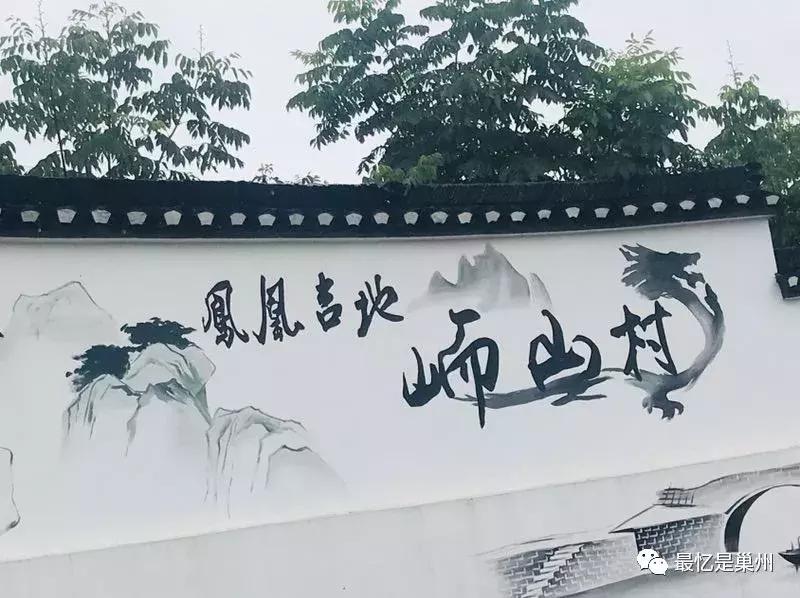 鳳凰吉地
峏山村
最忆是巢州